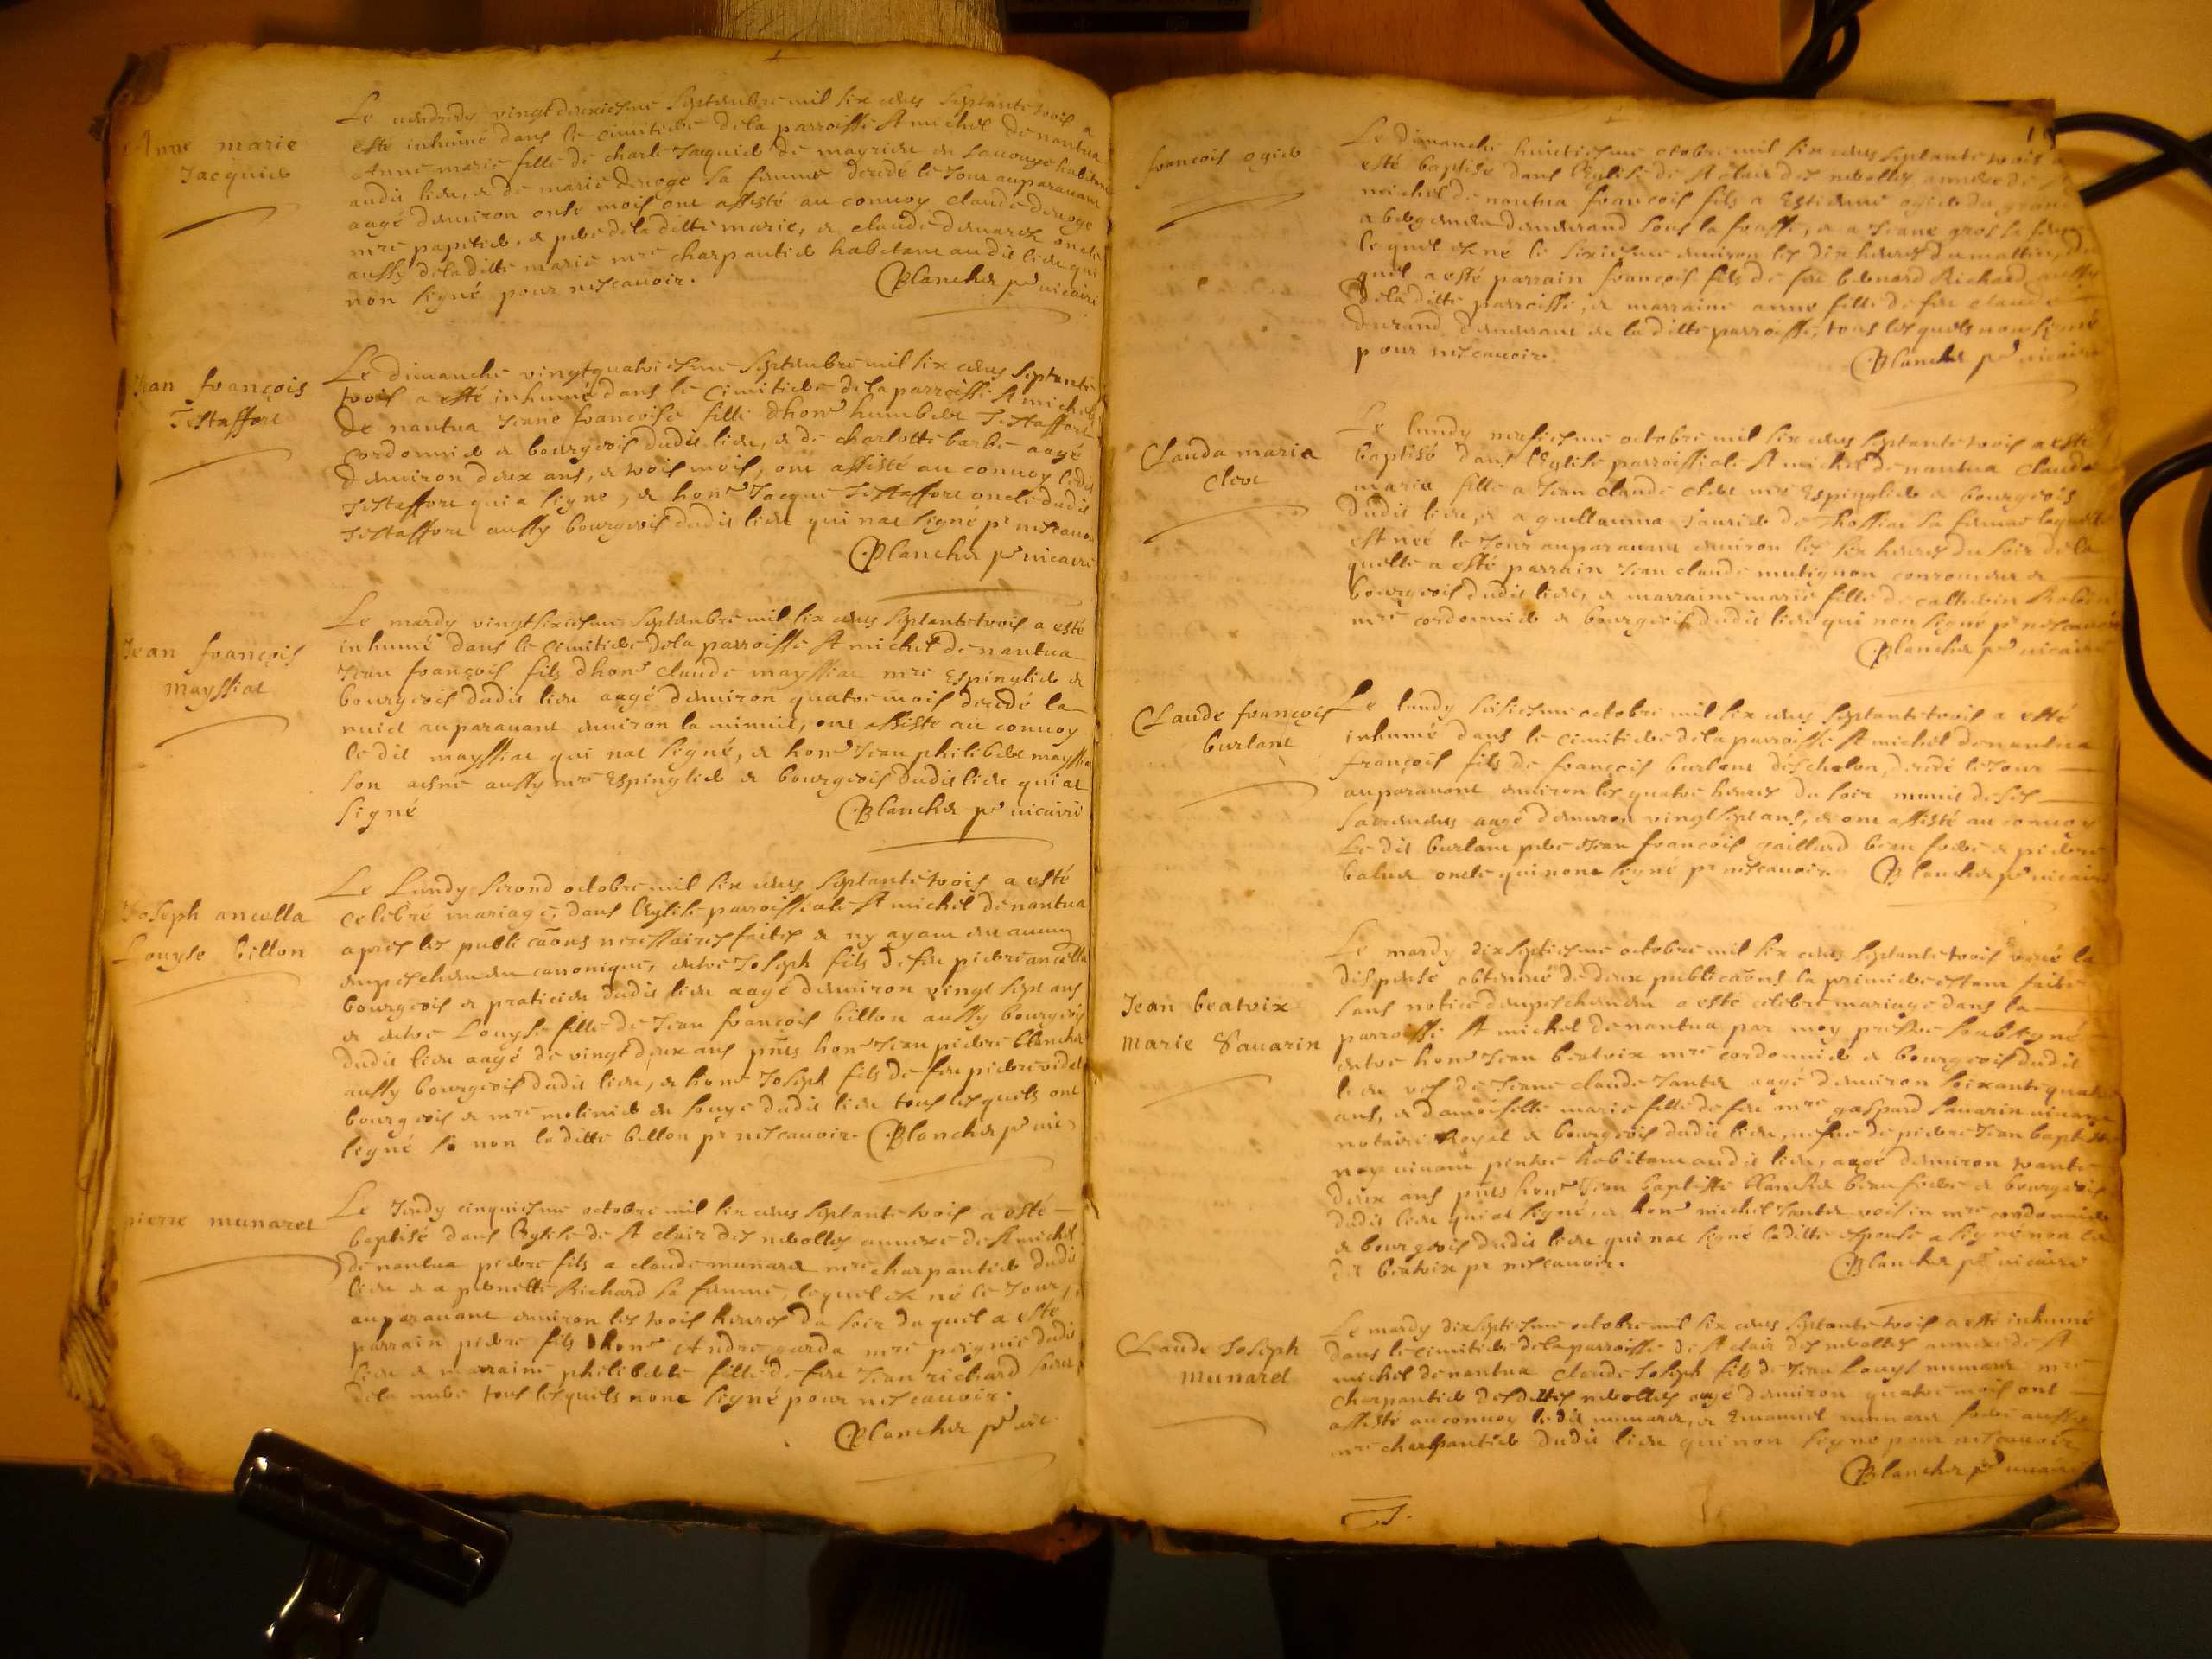 Anne marie
Jacquier
Le vendredy vingtdeuxiesme septembre mil six cens septante trois a
esté inhumé dans le cimitiere de la parroisse St michel de nantua
Anne marie fille de charle Jacquier de en sauouye habitant
audit lieu, et de marie deroge sa femme decedé le Jour auparauant
aagé denuiron onse mois ont assisté au conuoy claude deroge
mre papetier, et pere de la ditte marie, et claude oncle
aussy de la ditte marie mre charpantier habitant audit lieu qui
non signé pour ne scauoir.
Blanchet pre vicaire
Jean françois
Testaffort
Le dimanche vingtquatriesme septembre mil six cens septante
trois a esté inhumé dans le Cimitiere de la parroisse St michel
de nantua Jeane françoise fille dhonr humbert Testaffort
cordonnier et bourgeois dudit lieu, et de charlotte barbe aagé
denuiron deux ans, et trois mois, ont assisté au conuoy ledit
Testaffort qui a signe, et honr Jacque Testaffort oncle dudit
Testaffort aussy bourgeois dudit lieu qui nat signé pr ne scauoir
Blanchet pre vicaire
Jean françois
mayssiat
Le mardy vingtsixiesme septembre mil six cens septante trois a esté
inhumé dans le cimitiere de la parroisse St michel de nantua
Jean françois fils dhonr claude mayssiat mre Espinglier et
bourgeois dudit lieu aagé denuiron quatre mois decedé la
nuict auparauant enuiron la minuit, ont assisté au conuoy
le dit mayssiat qui nat signé, et honr Jean philibert mayssiat
son aisné aussy mre Espinglier et bourgeois dudit lieu qui at
signé
Blanchet pre vicaire
Joseph ancella
Louyse billon
Le Lundy second octobre mil six cens septante trois a esté
celebré mariage, dans l'Eglise parroissiale St michel de nantua
apres les publicaõns necessaires faites et ny ayant eu aucung
empeschement canonique, entre Joseph fils de feu pierre ancella
bourgeois et praticien dudit lieu aagé denuiron vingt sept ans
et entre Louyse fille de Jean françois billon aussy bourgeois
dudit lieu aagé de vingt deux ans pñts honr Jean pierre blanchet
aussy bourgeois dudit lieu, et honr Joseph fils de feu pierre vidal
bourgeois et mre molinier en souye dudit lieu tous lesquels ont
signé si non laditte billon pr ne scauoir. Blanchet pre vic
pierre munaret
Le Jeudy cinquiesme octobre mil six cens septante trois a esté
baptisé dans l'Eglise de St clair des neolles annexe de St michel
de nantua pierre fils a claude munaret mre charpantier dudit
lieu et a pernette Richard sa femme, lequel est né le Jour
auparauant enuiron les trois heures du soir du quel a esté
parrain pierre fils dhonr Andre garda mre peignie dudit
lieu et marraine philiberte fille de feu Jean richard seur
de la mere tous lesquels nont signé pour ne scauoir.
Blanchet pre vic
françois ogier
Le dimanche huictiesme octobre mil six cens septante trois a
esté baptisé dans l'Eglise de St clair des neolles annexe de St
michel de nantua françois fils a Estienne ogier du grand
abergement demeurand sous la fraisse, et a Jeane gros sa femme
lequel est né le sixiesme enuiron les dix heures du mattin, du
quel a esté parrain françois fils de feu bernard Richard aussy
de la ditte parroisse, et marraine anne fille de feu claude
durand demeurant en la ditte parroisse, tous lesquels nont signé
pour ne scauoir.
Blanchet pre vicaire
Clauda maria
clerc
Le lundy neufiesme octobre mil six cens septante trois a esté
baptisé dans l'Eglise parroissiale St michel de nantua clauda
maria fille a Jean claude clerc mre Espinglier et bourgeois
dudit lieu, et a guellauma de Thossiat sa femme laquelle
est née le Jour auparauant enuiron les six heures du soir de la
quelle a esté parrain Jean claude mutignon et
bourgeois dudit lieu, et marraine marie fille de catherin
mre cordonnier et bourgeois dudit lieu qui non signé pr ne scauoir
Blanchet pre vicaire
Claude françois
burlant
Le lundy seisiesme octobre mil six cens septante trois a esté
inhumé dans le cimitiere de la parroisse St michel de nantua
françois fils de françois burlant deschalon, decedé le Jour
auparauant enuiron les quatre heures du soir munit de ses
sacremens aagé denuiron vingt sept ans, et ont assisté au conuoy
Le dit burlant pere Jean françois gaillard beau frere et pierre
oncle qui nont signé pr ne scauoir. Blanchet pre vicaire
Jean beatrix
Marie Sauarin
Le mardy dixseptiesme octobre mil six cens septante trois veué la
dispense obtenue de deux publicaõns la premiere estant faite
sans notice dempeschement a esté celebré mariage dans la
parroisse St michel de nantua par moy prestre soubsigné
entre honr Jean beatrix mre cordonnier et bourgeois dudit
lieu vef de Jeane claude Jantet aagé denuiron soixante quatre
ans, et damoiselle marie fille de feu mre gaspard sauarin viuant
notaire Royal et bourgeois dudit lieu, vefue de pierre Jean baptiste
viuant peintre habitant audit lieu, aagé denuiron trante
deux ans pñts honr Jean baptiste blanchet beau frere et bourgeois
dudit lieu qui at signé, et honr michel Jantet voisin mre cordonnier
et bourgeois dudit lieu qui nat signé laditte espouse a signé non le
dit beatrix pr ne scauoir.
Blanchet pre vicaire
Claude Joseph
munaret
Le mardy dixseptiesme octobre mil six cens septante trois a esté inhumé
dans le cimitiere de la parroisse de St clair des neolles annexe de St
michel de nantua claude Joseph fils de Jean Louys munaret mre
charpantier des dittes neolles aagé denuiron quatre mois ont
assisté au conuoy le dit munaret, et Emanuel munaret frere aussy
mre charpantier dudit lieu qui non signé pour ne scauoir
Blanchet pre vicaire